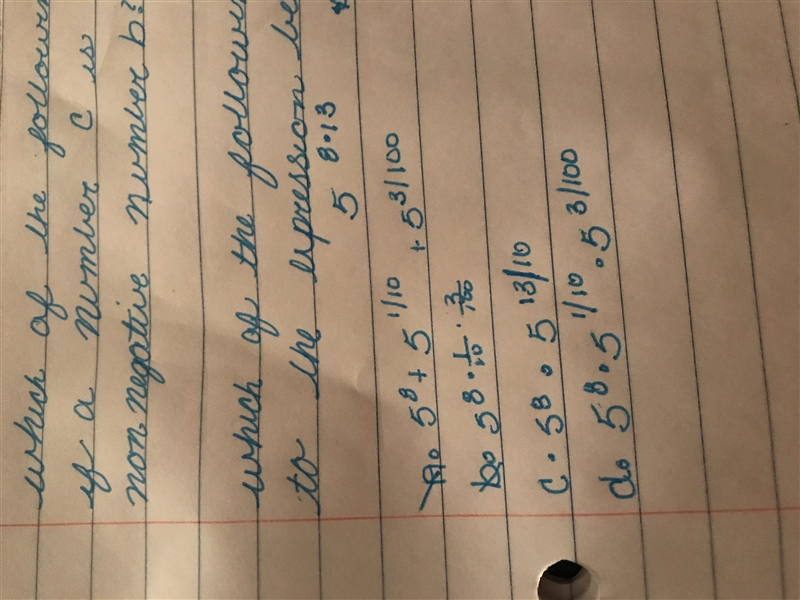 which of the
if a number c is
nonnegative number b?
which of the
to the expression be
5^8.13
a. 5^8 + 5^1/10 + 5^3/100
b. 5^8 · 1/10 · 3/100
c. 5^8 · 5^13/10
d. 5^8 · 5^1/10 · 5^3/100